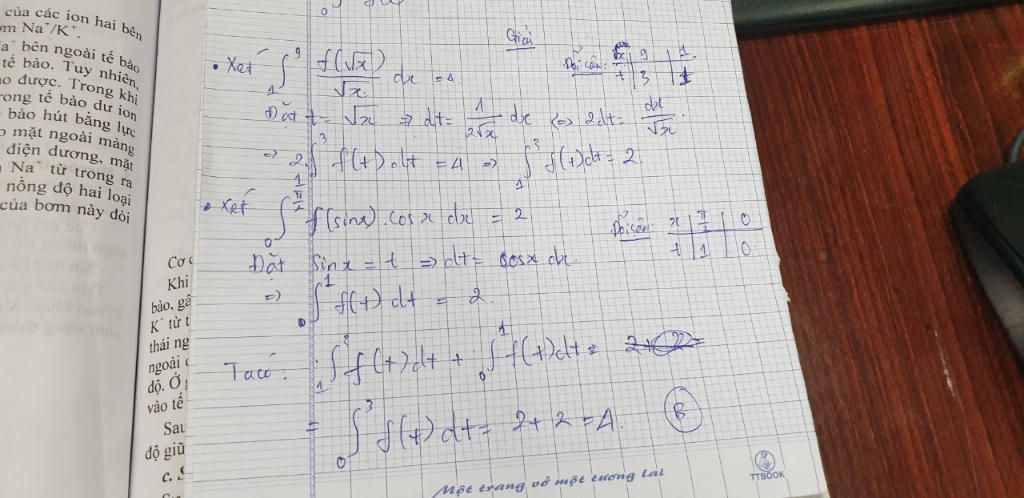 của các ion hai bên
m Na⁺/K⁺.
a⁺ bên ngoài tế bào
tế bào. Tuy nhiên,
o được. Trong khi
rong tế bào dư ion
bào hút bằng lực
mặt ngoài màng
điện dương, mặt
Na⁺ từ trong ra
nồng độ hai loại
của bơm này đòi
Cơ c
Khi
bào, gâ
K⁺ từ t
thái ng
ngoài
độ. Ở
vào tế
Sau
độ giữ
c. S
Giải
• Xét ∫₁⁹ f(√x)/√x dx = 4
Đổi cận: x | 9 | 1
t | 3 | 1
Đặt t = √x ⇒ dt = 1/(2√x) dx ⇔ 2dt = dx/√x
⇒ 2∫₁³ f(t) dt = 4 ⇒ ∫₁³ f(t)dt = 2
• Xét ∫₀^(π/2) f(sinx).cosx dx = 2
Đổi cận: x | π/2 | 0
t | 1 | 0
Đặt sinx = t ⇒ dt = cosx dx
⇒ ∫₀¹ f(t) dt = 2
Ta có: ∫₁³ f(t)dt + ∫₀¹ f(t)dt =
= ∫₀³ f(t) dt = 2 + 2 = 4. B
Một trang vở một tương lai
TTBOOK